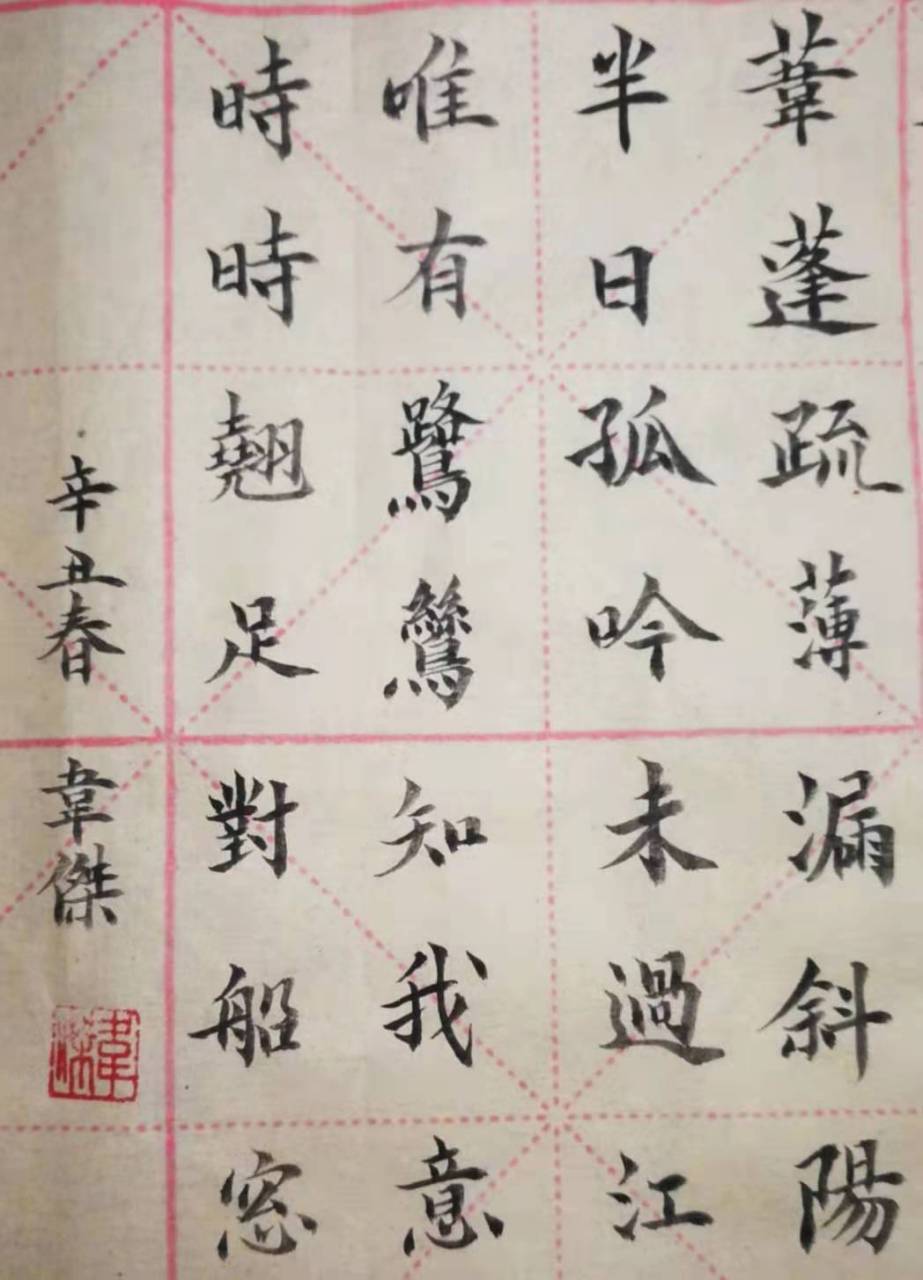 葦蓬疏薄漏斜陽
半日孤吟未過江
唯有鷺鷥知我意
時時翹足對船窓
辛丑春韋傑
韋傑